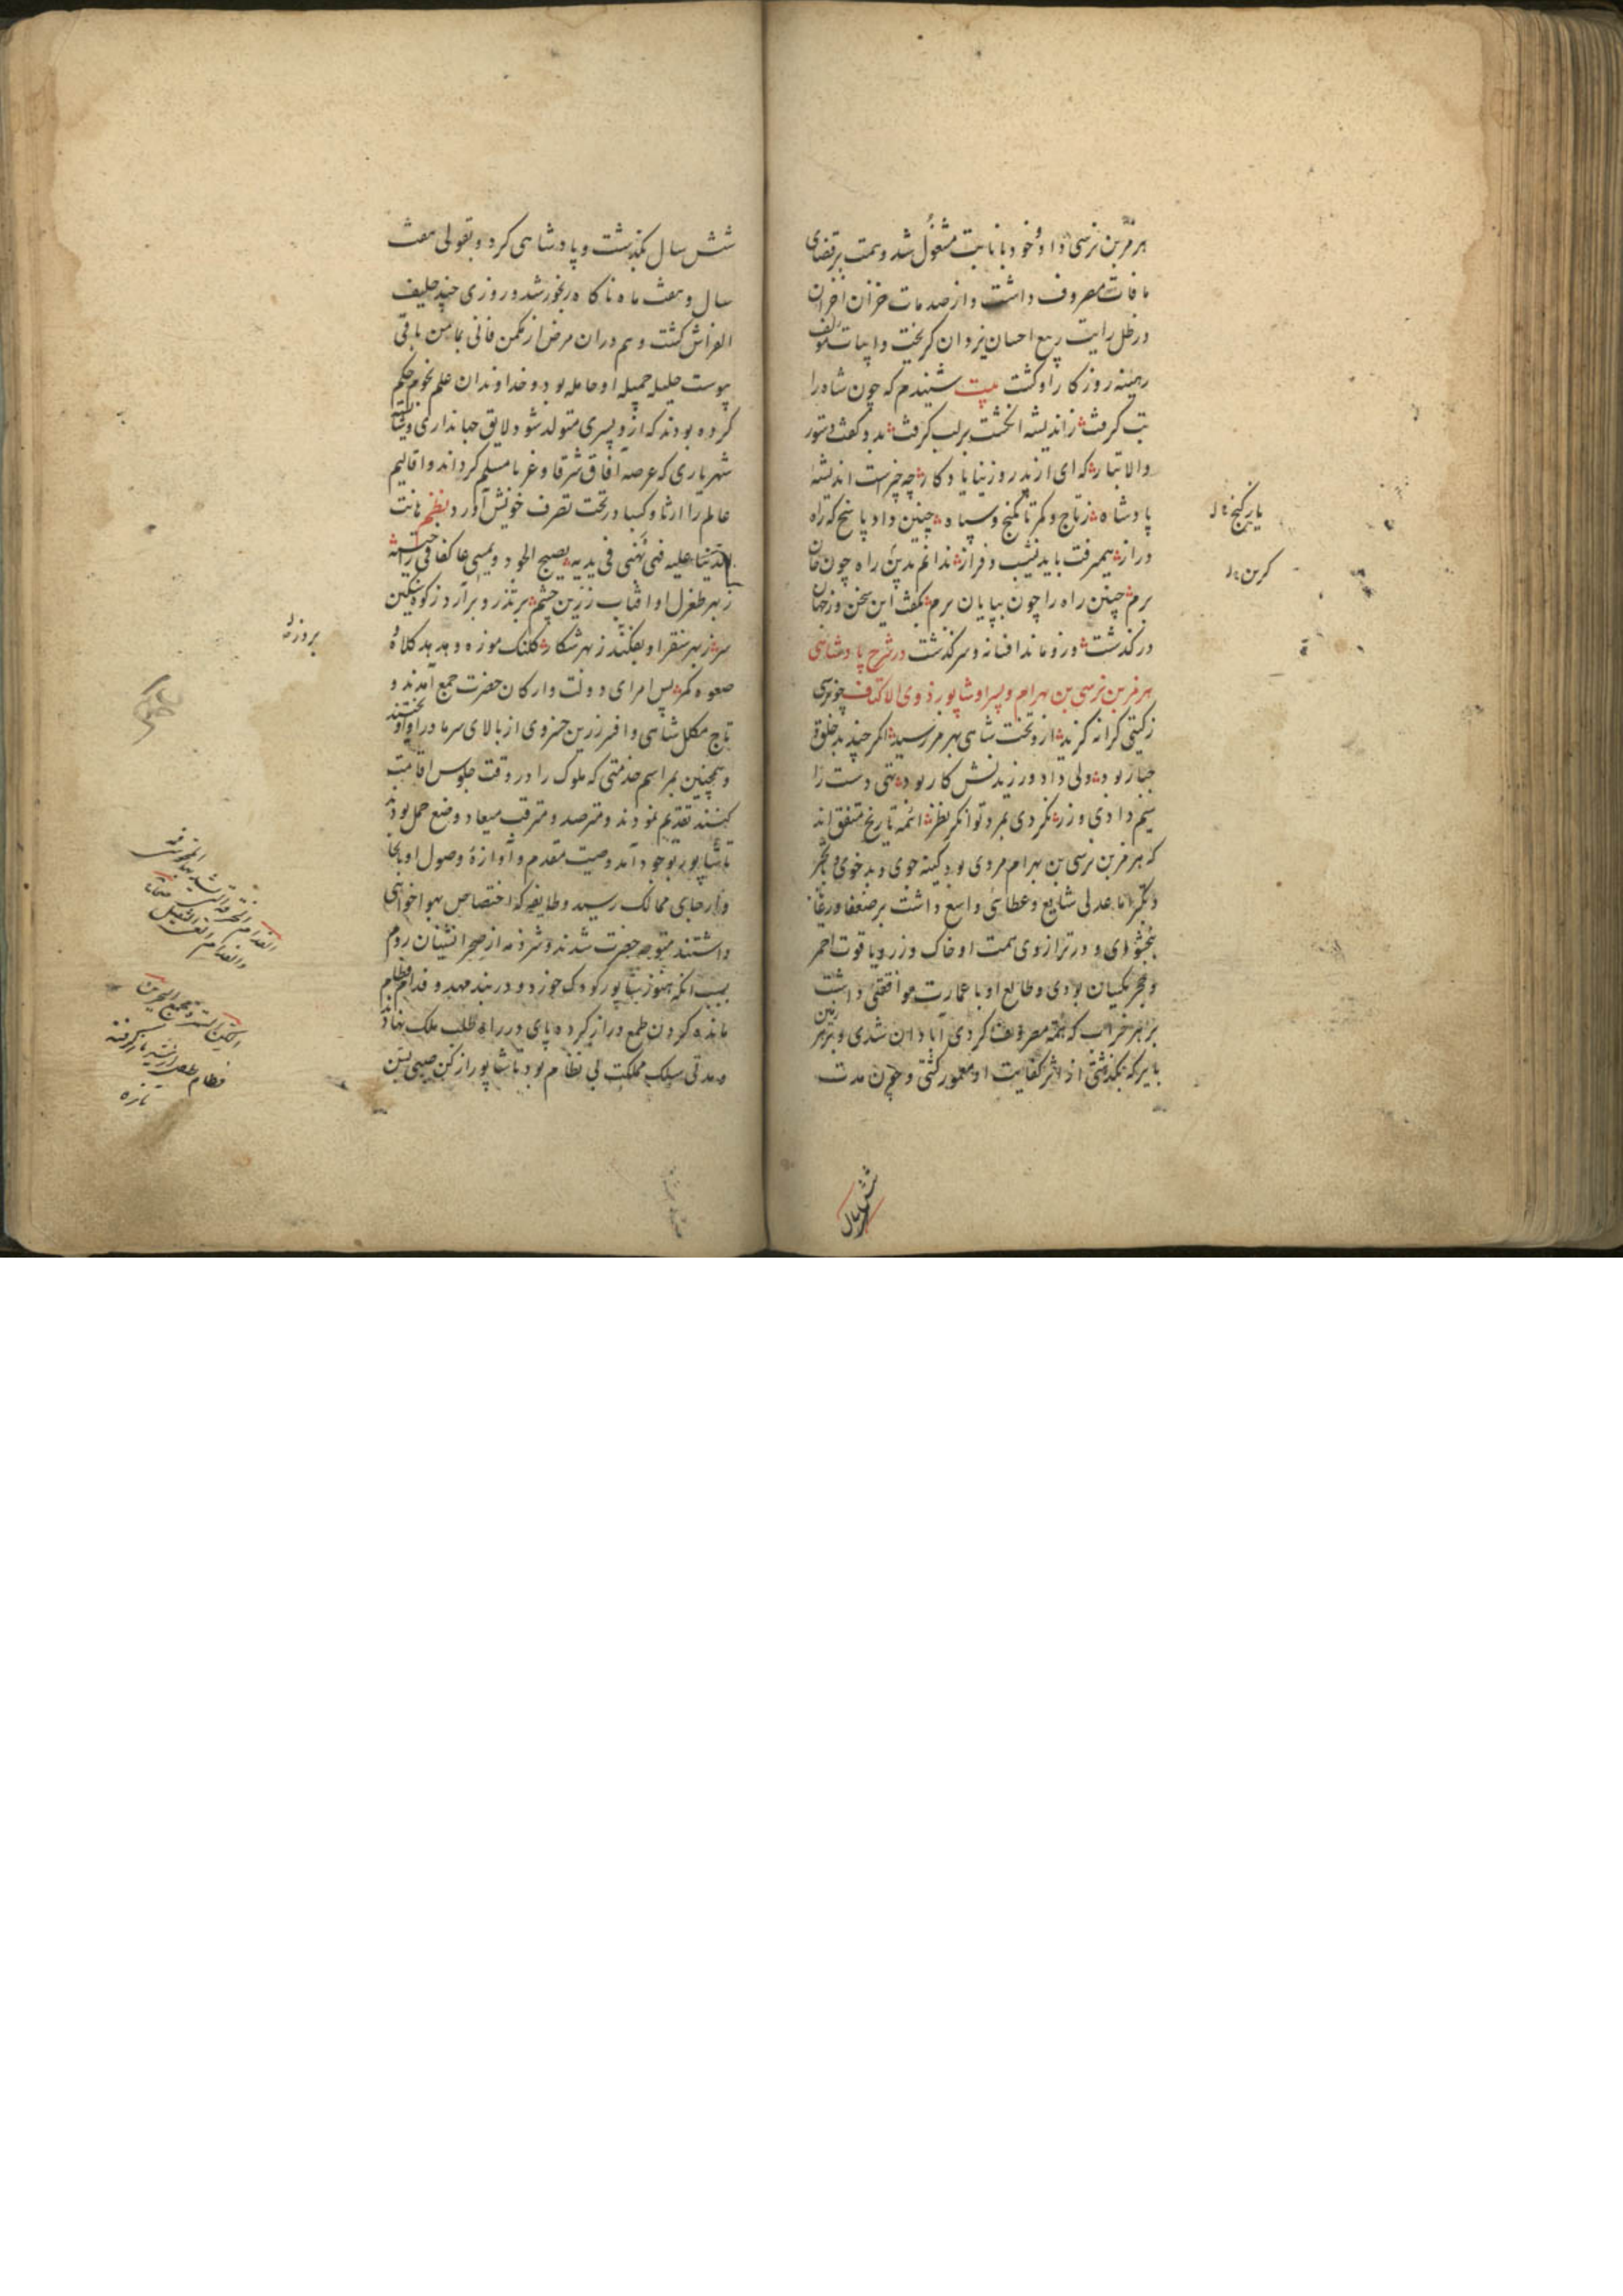 هرمز بن نرسی داد و خود بانابت مشغول شد و همت بر قضای
مافات مصروف داشت و از صدمات خزان اخران
در ظل رایت ربیع احسان یزدان کریخت و ابیات مولف
رهینه روزکار او کشت بیت شنیدم که چون شاه را
تب کرفت زاندیشه انکشت برلب کرفت بدو کفت دستور
والاتبار که ای از پدر روزنیا یادکار چه چیزست اندیشه
پادشاه ز تاج و کمر تا کنج و سپاه چنین داد پاسخ که راه
دراز همی رفت باید نشیب و فراز ندانم بدین راه چون
برم چنین راه را چون بپایان برم بکفت این سخن وز جهان
درکذشت وزو ماند افسانه و سرکذشت در شرح پادشاهی
هرمز بن نرسی بن بهرام و پسر او شاپور ذوی الاکتاف چو نرسی
ز کیتی کرانه کزید ازو تخت شاهی بهرمز رسید اکر چند بد خلق و
جبار بود ولی داد ورزیدنش کار بود تهی دست را
سیم دادی و زر نکردی بمرد توانکر نظر ائمه تاریخ متفق اند
که هرمز بن نرسی بن بهرام مردی بود کینه جوی و بدخوی و
اما عدلی شایع و عطائی واسع داشت بر ضعفا و رعایا
ببخشودی و در ترازوی همت او خاک و زر و یاقوت احمر
و حجر یکسان بودی و طالع او با عمارت موافقتی داشت
بر هر خراب که همت مصروف کردی آبادان شدی و بر هر زمین
بایر که بکذشتی از اثر کفایت او معمور کشتی و چون مدت
شش سال
شش سال بکذشت و پادشاهی کرد و بقولی هفت
سال و هفت ماه ناکاه رنجور شد و روزی چند حلیف
الفراش کشت و هم دران مرض از مکمن فانی بمامن باقی
پیوست حلیله جمیله او حامله بود و خداوندان علم نجوم حکم
کرده بودند که ازو پسری متولد شود لایق جهانداری و
شهریاری که عرصه آفاق شرقا و غربا مسلم کرداند و اقالیم
عالم را ارثا و کسبا در تحت تصرف خویش آورد نظم
علیه فهی فی یدیه یصبح الجود و یمسی عاکفا فی راحتیه
ز بهر طغرل او آفتاب زرین چشم
سر ز بهر سنقر او بفکند ز بهر شکار کلنک موزه و هدهد کلاه و
صعوه کمر پس امرای دولت و ارکان حضرت جمع آمدند و
تاج مکلل شاهی و افسر زرین خسروی از بالای سر مادر او آویختند
و همچنین بمراسم خدمتی که ملوک را در وقت جلوس اقامت
کنند تقدیم نمودند و مترصد و مترقب میعاد وضع حمل بودند
تا شاپور بوجود آمد وصیت مقدم و آوازهٔ وصول او
و ارجای ممالک رسید و طایفه که اختصاص بهواخواهی
داشتند متوجه حضرت شدند و شرذمه از صحرانشینان روم
بسبب انکه هنوز شاپور کودک خورد و در بند مهد و فدام فطام
مانده کردن طمع دراز کرده پای در راه طلب ملک نهادند
و مدتی سلک مملکت بی نظام بود تا شاپور از کن صبی